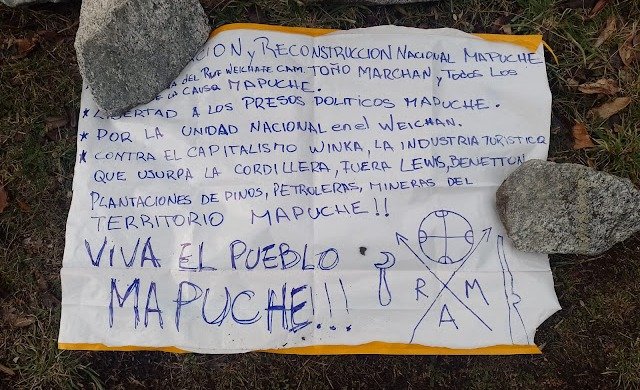 CION Y RECONSTRUCCION NACIONAL MAPUCHE
DEL PU WEICHAFE CAM. TOÑO MARCHAN, Y TODOS LOS
DE LA CAUSA MAPUCHE.
* LIBERTAD A LOS PRESOS POLITICOS MAPUCHE.
* POR LA UNIDAD NACIONAL en el WEICHAN.
* CONTRA EL CAPITALISMO WINKA, LA INDUSTRIA TURISTICA
QUE USURPA LA CORDILLERA, FUERA LEWIS, BENETTON
PLANTACIONES DE PINOS, PETROLERAS, MINERAS DEL
TERRITORIO MAPUCHE!!
VIVA EL PUEBLO
MAPUCHE!!!
R A M